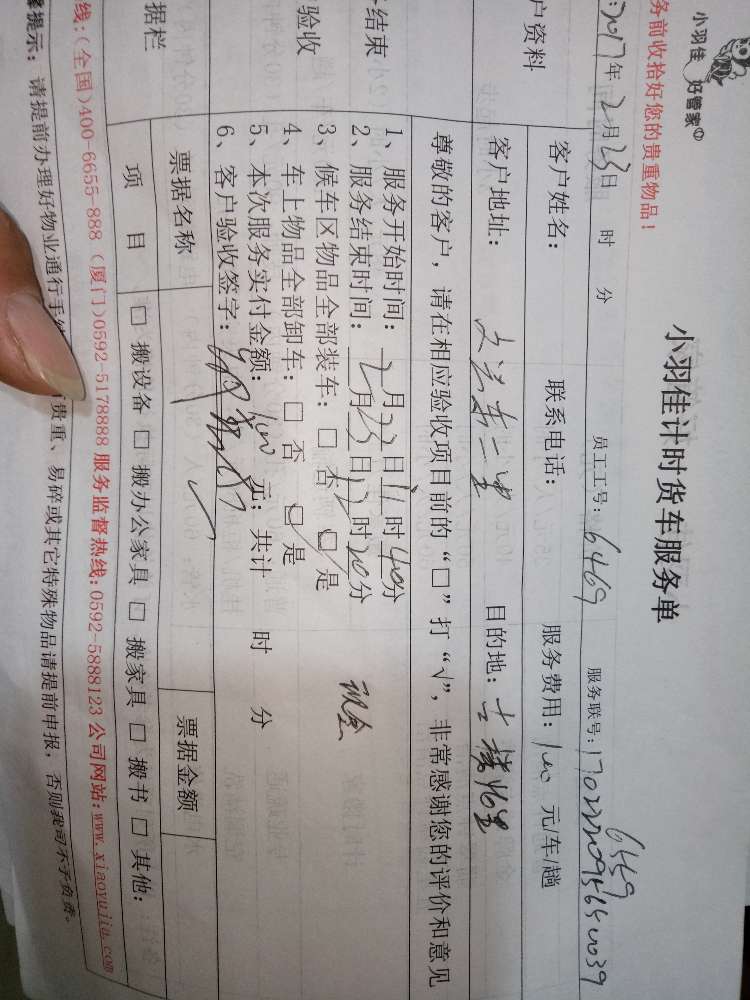 小羽佳 好管家
务前收拾好您的贵重物品！
小羽佳计时货车服务单
2017年2月23日 时 分 员工工号：6469 服务联号：
6469
户资料
客户姓名： 联系电话： 服务费用：100 元/车/趟
客户地址： 目的地：
尊敬的客户，请在相应验收项目前的“□”打“√”，非常感谢您的评价和意见
务结束
验收
1、服务开始时间：2月23日11时40分
2、服务结束时间：2月23日12时20分
3、候车区物品全部装车：□ 否 □ 是 现金
4、车上物品全部卸车：□ 否 □ 是
5、本次服务实付金额：100 元；共计 时 分
6、客户验收签字：
据栏
票据名称 票据金额
项 目 □ 搬设备 □ 搬办公家具 □ 搬家具 □ 搬书 □ 其他：
线：(全国)400-6655-888 (厦门)0592-5178888 服务监督热线：0592-5888123 公司网站：www.xiaoyujia.com
提示：请提前办理好物业通行手 贵重、易碎或其它特殊物品请提前申报，否则我司不予负责。